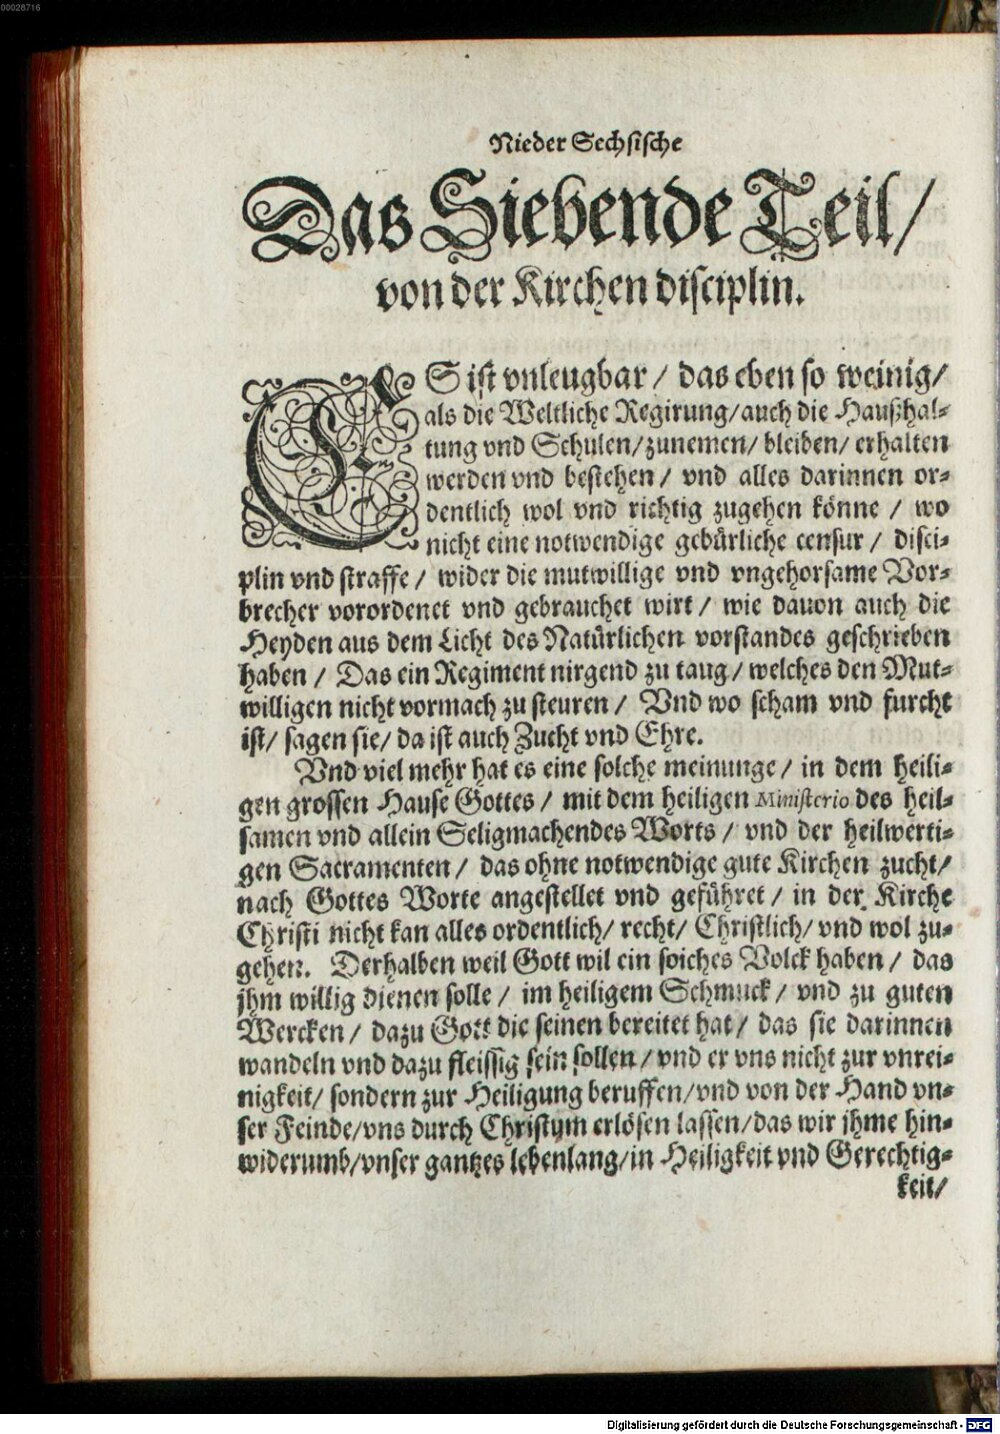 00028716
Nieder Sechsische
Das Siebende Teil/
von der Kirchen disciplin.
ES ist vnleugbar / das eben so weinig/
als die Weltliche Regirung/auch die Haußhal-
tung vnd Schulen/zunemen/ bleiben/ erhalten
werden vnd bestehen / vnd alles darinnen or-
dentlich wol vnd richtig zugehen könne / wo
nicht eine notwendige gebürliche censur / disci-
plin vnd straffe / wider die mutwillige vnd vngehorsame Vor-
brecher vorordenet vnd gebrauchet wirt / wie dauon auch die
Heyden aus dem Licht des Natürlichen vorstandes geschrieben
haben / Das ein Regiment nirgend zu taug / welches den Mut-
willigen nicht vormach zu steuren / Vnd wo scham vnd furcht
ist/ sagen sie/ da ist auch Zucht vnd Ehre.
Vnd viel mehr hat es eine solche meinunge / in dem heili-
gen grossen Hause Gottes / mit dem heiligen Ministerio des heil-
samen vnd allein Seligmachendes Worts / vnd der heilwerti-
gen Sacramenten / das ohne notwendige gute Kirchen zucht/
nach Gottes Worte angestellet vnd geführet / in der Kirche
Christi nicht kan alles ordentlich/ recht/ Christlich/ vnd wol zu-
gehen. Derhalben weil Gott wil ein solches Volck haben / das
jhm willig dienen solle / im heiligem Schmuck / vnd zu guten
Wercken / dazu Gott die seinen bereitet hat / das sie darinnen
wandeln vnd dazu fleissig sein sollen / vnd er vns nicht zur vnrei-
nigkeit/ sondern zur Heiligung beruffen/vnd von der Hand vn-
ser Feinde/vns durch Christum erlösen lassen/das wir jhme hin-
widerumb/vnser gantzes lebenlang/in Heiligkeit vnd Gerechtig-
keit/
Digitalisierung gefördert durch die Deutsche Forschungsgemeinschaft - DFG